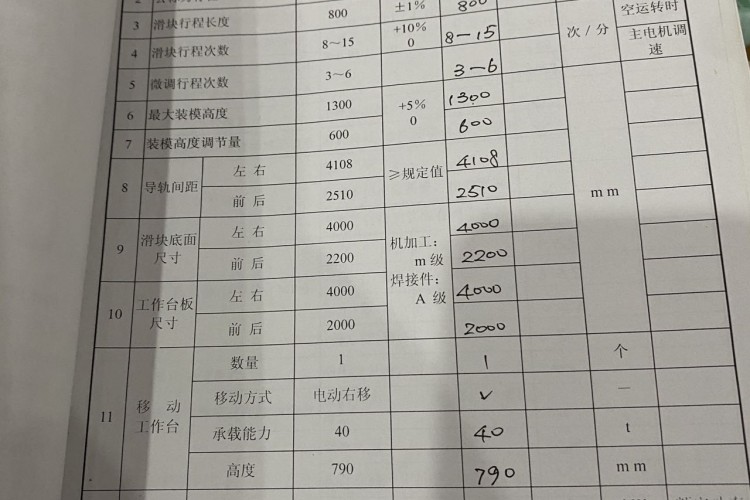 3 滑块行程长度 800 ±1% 800 空运转时
4 滑块行程次数 8~15 +10% 0 8-15 次/分 主电机调速
5 微调行程次数 3~6 3-6
6 最大装模高度 1300 +5% 0 1300
7 装模高度调节量 600 600
8 导轨间距 左右 4108 ≥规定值 4108 mm
前后 2510 2510
9 滑块底面尺寸 左右 4000 机加工: m级 焊接件: A级 4000
前后 2200 2200
10 工作台板尺寸 左右 4000 4000
前后 2000 2000
11 移动工作台 数量 1 1 个
移动方式 电动右移 ✓ —
承载能力 40 40 t
高度 790 790 mm